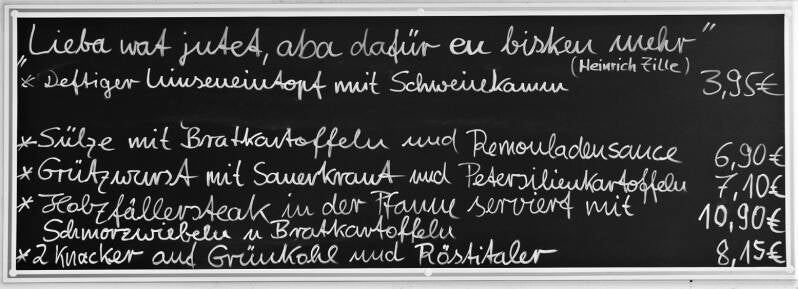 „Lieba wat jutet, aba dafür en bisken mehr"
(Heinrich Zille)
* Deftiger Linseneintopf mit Schweinekamm 3,95€
* Sülze mit Bratkartoffeln und Remouladensauce 6,90€
* Grützwurst mit Sauerkraut und Petersilienkartoffeln 7,10€
* Holzfällersteak in der Pfanne serviert mit 10,90€
Schmorzwiebeln u Bratkartoffeln
* 2 Knacker auf Grünkohl und Röstitaler 8,15€